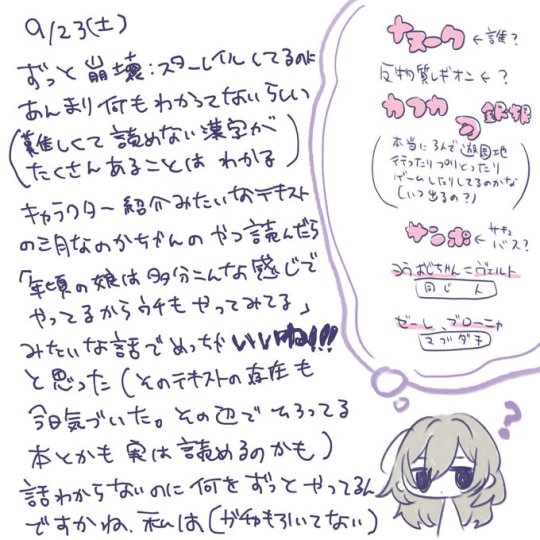 9/23(土)
ずっと崩壊:スターレイルしてるのに
あんまり何もわかってないらしい
(難しくて読めない漢字が
たくさんあることはわかる)
キャラクター紹介みたいなテキスト
の三月なのかちゃんのやつ読んだら
「年頃の娘は多分こんな感じで
やってるからウチもやってみてる」
みたいな話でめっちゃいいね!!!
と思った(そのテキストの存在も
今日気づいた。その辺でひろってる
本とかも実は読めるのかも)
話わからないのに何をずっとやってるん
ですかね、私は(ガチャも引いてない)
ナヌーク←誰?
反物質レギオン←?
カフカ
の 銀狼
(本当に3人で遊園地
行ったりプリとったり
ゲームしたりしてるのかな
(いつ出るの?))
サンポ←サキュ
バス?
ヨウおじちゃん=ヴェルト
同じ人
ゼーレ、ブローニャ
マブダチ
?